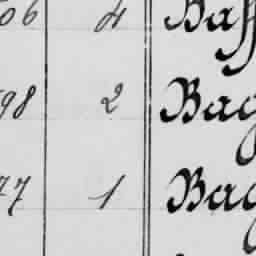 06 4 Baff
98 2 Bag
77 1 Bag